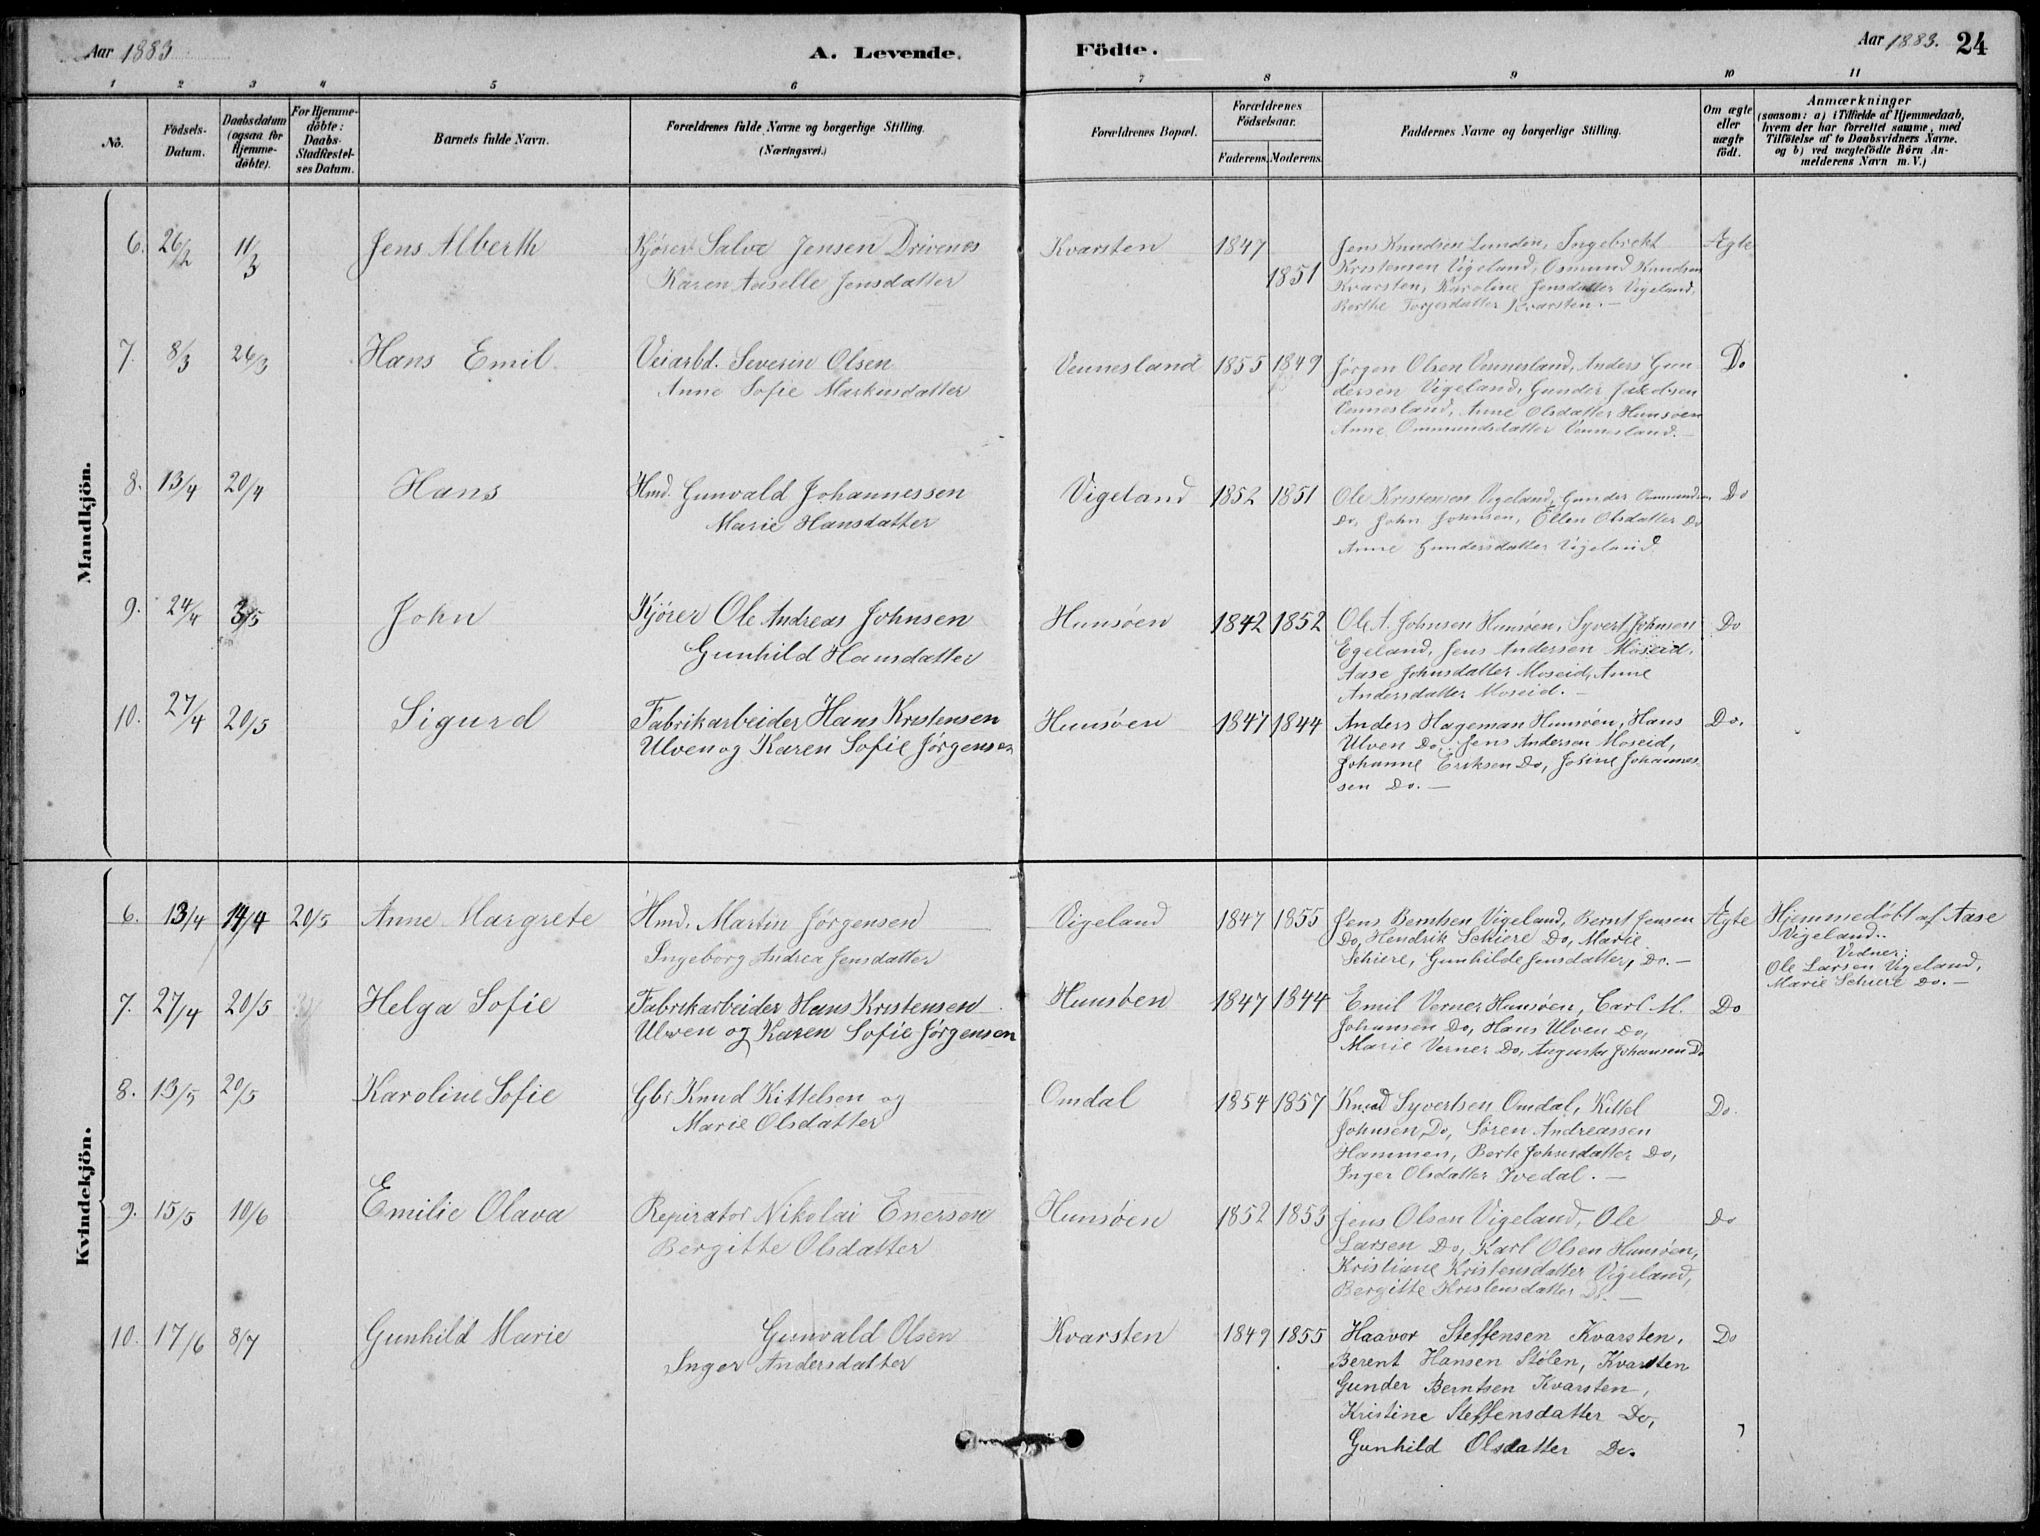 Aar 1883
A. Levende.
Födte.
Aar 1883.
24
1 2 3 4 5 6 7 8 9 10 11
No.
Födsels-
Datum.
Daabsdatum
(ogsaa for
Hjemme-
döbte).
For Hjemme-
döbte:
Daabs-
Stadfæstel-
ses Datum.
Barnets fulde Navn.
Forældrenes fulde Navne og borgerlige Stilling.
(Næringsvei.)
Forældrenes Bopæl.
Forældrenes
Födselsaar.
Faderens. Moderens.
Faddernes Navne og borgerlige Stilling.
Om ægte
eller
uægte
födt.
Anmærkninger
(saasom: a) i Tilfælde af Hjemmedaab,
hvem der har forrettet samme, med
Tilföielse af to Daabsvidners Navne,
og b) ved uægtefödte Börn An-
melderens Navn m. V.)
Mandkjön.
6. 26/2 11/3 Jens Alberth
Kjører Salve Jensen Drivenes
Karen Aaselle Jensdatter
Kvarsten 1847 1851
Jens Knudsen Lunden, Torgebrekt
Kristensen Vigeland, Osmund Knudsen
Kvarsten, Karoline Jensdatter Vigeland,
Berthe Torjesdatter Kvarsten. —
Ægte
7. 8/3 26/3 Hans Emil
Veiarbd. Severin Olsen
Anne Sofie Markusdatter
Vennesland 1855 1849
Jørgen Olsen Vennesland, Anders Gun-
dersen Vigeland, Gunder Jakobsen
Vennesland, Anne Olsdatter Hunsøen
Anne Ommundsdatter Vennesland. —
Do
8. 13/4 20/4 Hans
Hmd. Gunvald Johannessen
Marie Hansdatter
Vigeland 1852 1851
Ole Kristensen Vigeland, Gunder Ommundsen
Do, John Johnsen, Ellen Olsdatter Do
Anne Gundersdatter Vigeland
Do
9. 24/4 3/5 John
Kjører Ole Andreas Johnsen
Gunhild Hansdatter
Hunsøen 1842 1852
Ole A. Johnsen Hunsøen, Syvert Johnsen
Egeland, Jens Andersen Moseid,
Aase Johnsdatter Moseid, Anne
Andersdatter Moseid. —
Do
10. 27/4 20/5 Sigurd
Fabrikarbeider Hans Kristensen
Ulven og Karen Sofie Jørgensen
Hunsøen 1847 1844
Anders Hageman Hunsøen, Hans
Ulven Do, Jens Andersen Moseid,
Johanne Eriksen Do, Josine Johannes-
sen Do. —
Do.
Kvindekjön.
6. 13/4 14/4 20/5 Anne Margrete
Hmd. Martin Jørgensen
Ingeborg Andrea Jensdatter
Vigeland 1847 1855
Jens Berntsen Vigeland, Bernt Jensen
Do, Hendrik Schiere Do, Marie
Schiere, Gunhilde Jensdatter, Do. —
Ægte
Hjemmedøbt af Aase
Vigeland.
Vidner:
Ole Larsen Vigeland,
Marie Schiere Do. —
7. 27/4 20/5 Helga Sofie
Fabrikarbeider Hans Kristensen
Ulven og Karen Sofie Jørgensen
Hunsøen 1847 1844
Emil Verner Hunsøen, Carl M.
Johansen Do, Hans Ulven Do,
Marie Verner Do, Augusta Johansen Do
Do
8. 13/5 20/5 Karoline Sofie
Gbr Knud Kittelsen og
Marie Olsdatter
Omdal 1854 1857
Knud Syvertsen Omdal, Kittel
Johnsen Do, Søren Andreassen
Hammen, Berte Johnsdatter Do,
Inger Olsdatter Ivedal. —
Do.
9. 15/5 10/6 Emilie Olava
Repirator Nikolai Enersen
Bergitte Olsdatter
Hunsøen 1852 1853
Jens Olsen Vigeland, Ole
Larsen Do, Karl Olsen Hunsøen,
Kristiane Kristensdatter Vigeland,
Bergitte Kristensdatter Do. —
Do
10. 17/6 8/7 Gunhild Marie
Gunvald Olsen
Inger Andersdatter
Kvarsten 1849 1855
Haavor Steffensen Kvarsten,
Berent Hansen Stølen, Kvarsten
Gunder Berntsen Kvarsten,
Kristine Steffensdatter Do,
Gunhild Olsdatter Do.
Do